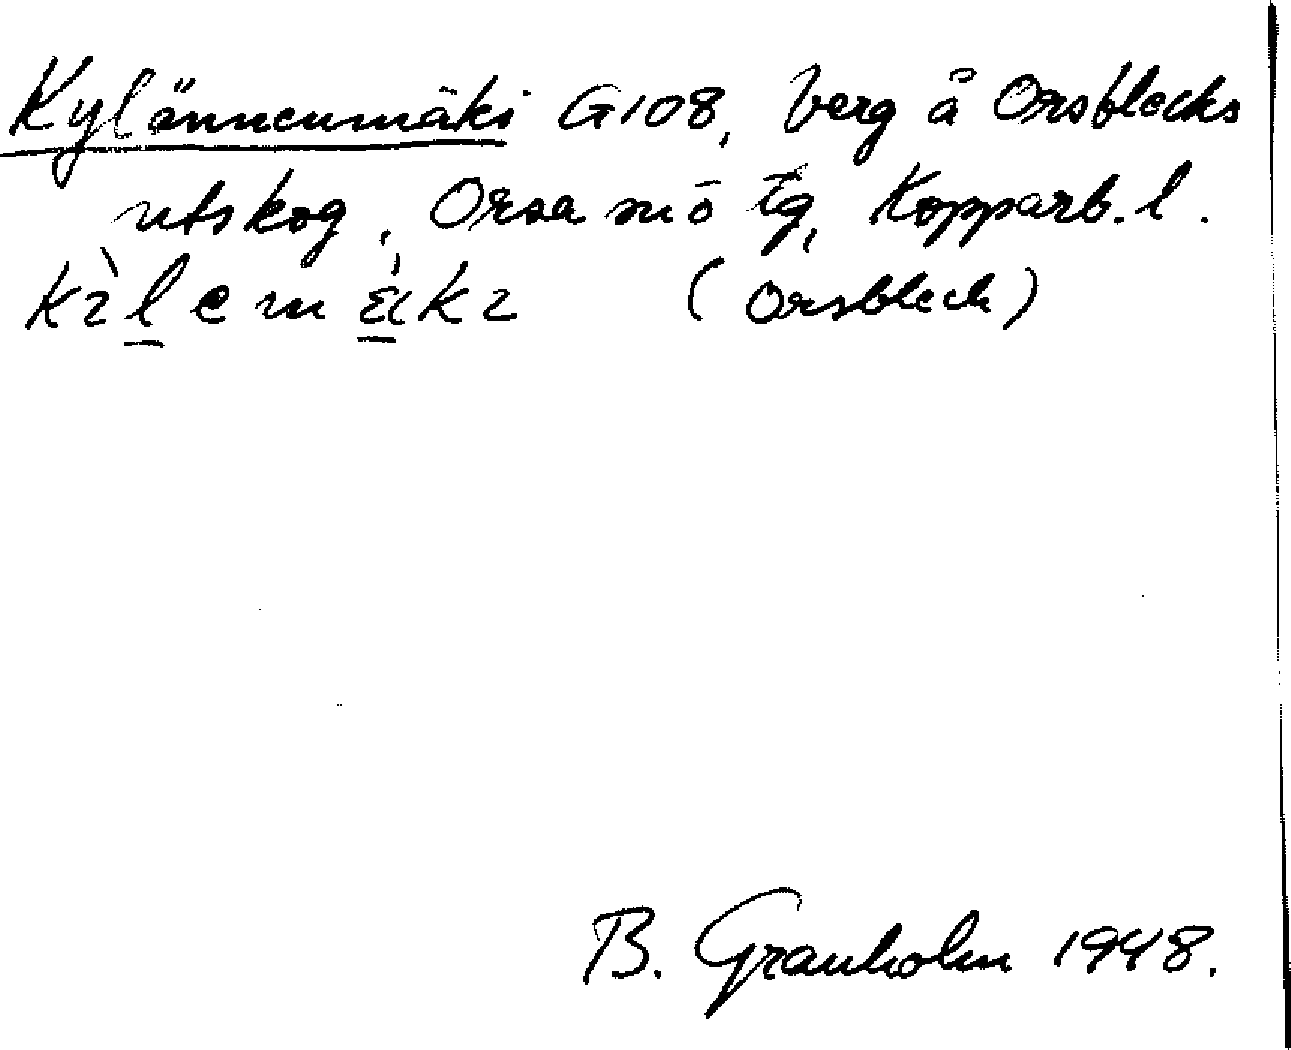 Kylännenmäki G108, berg å Orsblecks
utskog, Orsa snö tg, Kopparb. l.
(Orsbleck)
B. Granholm 1948.